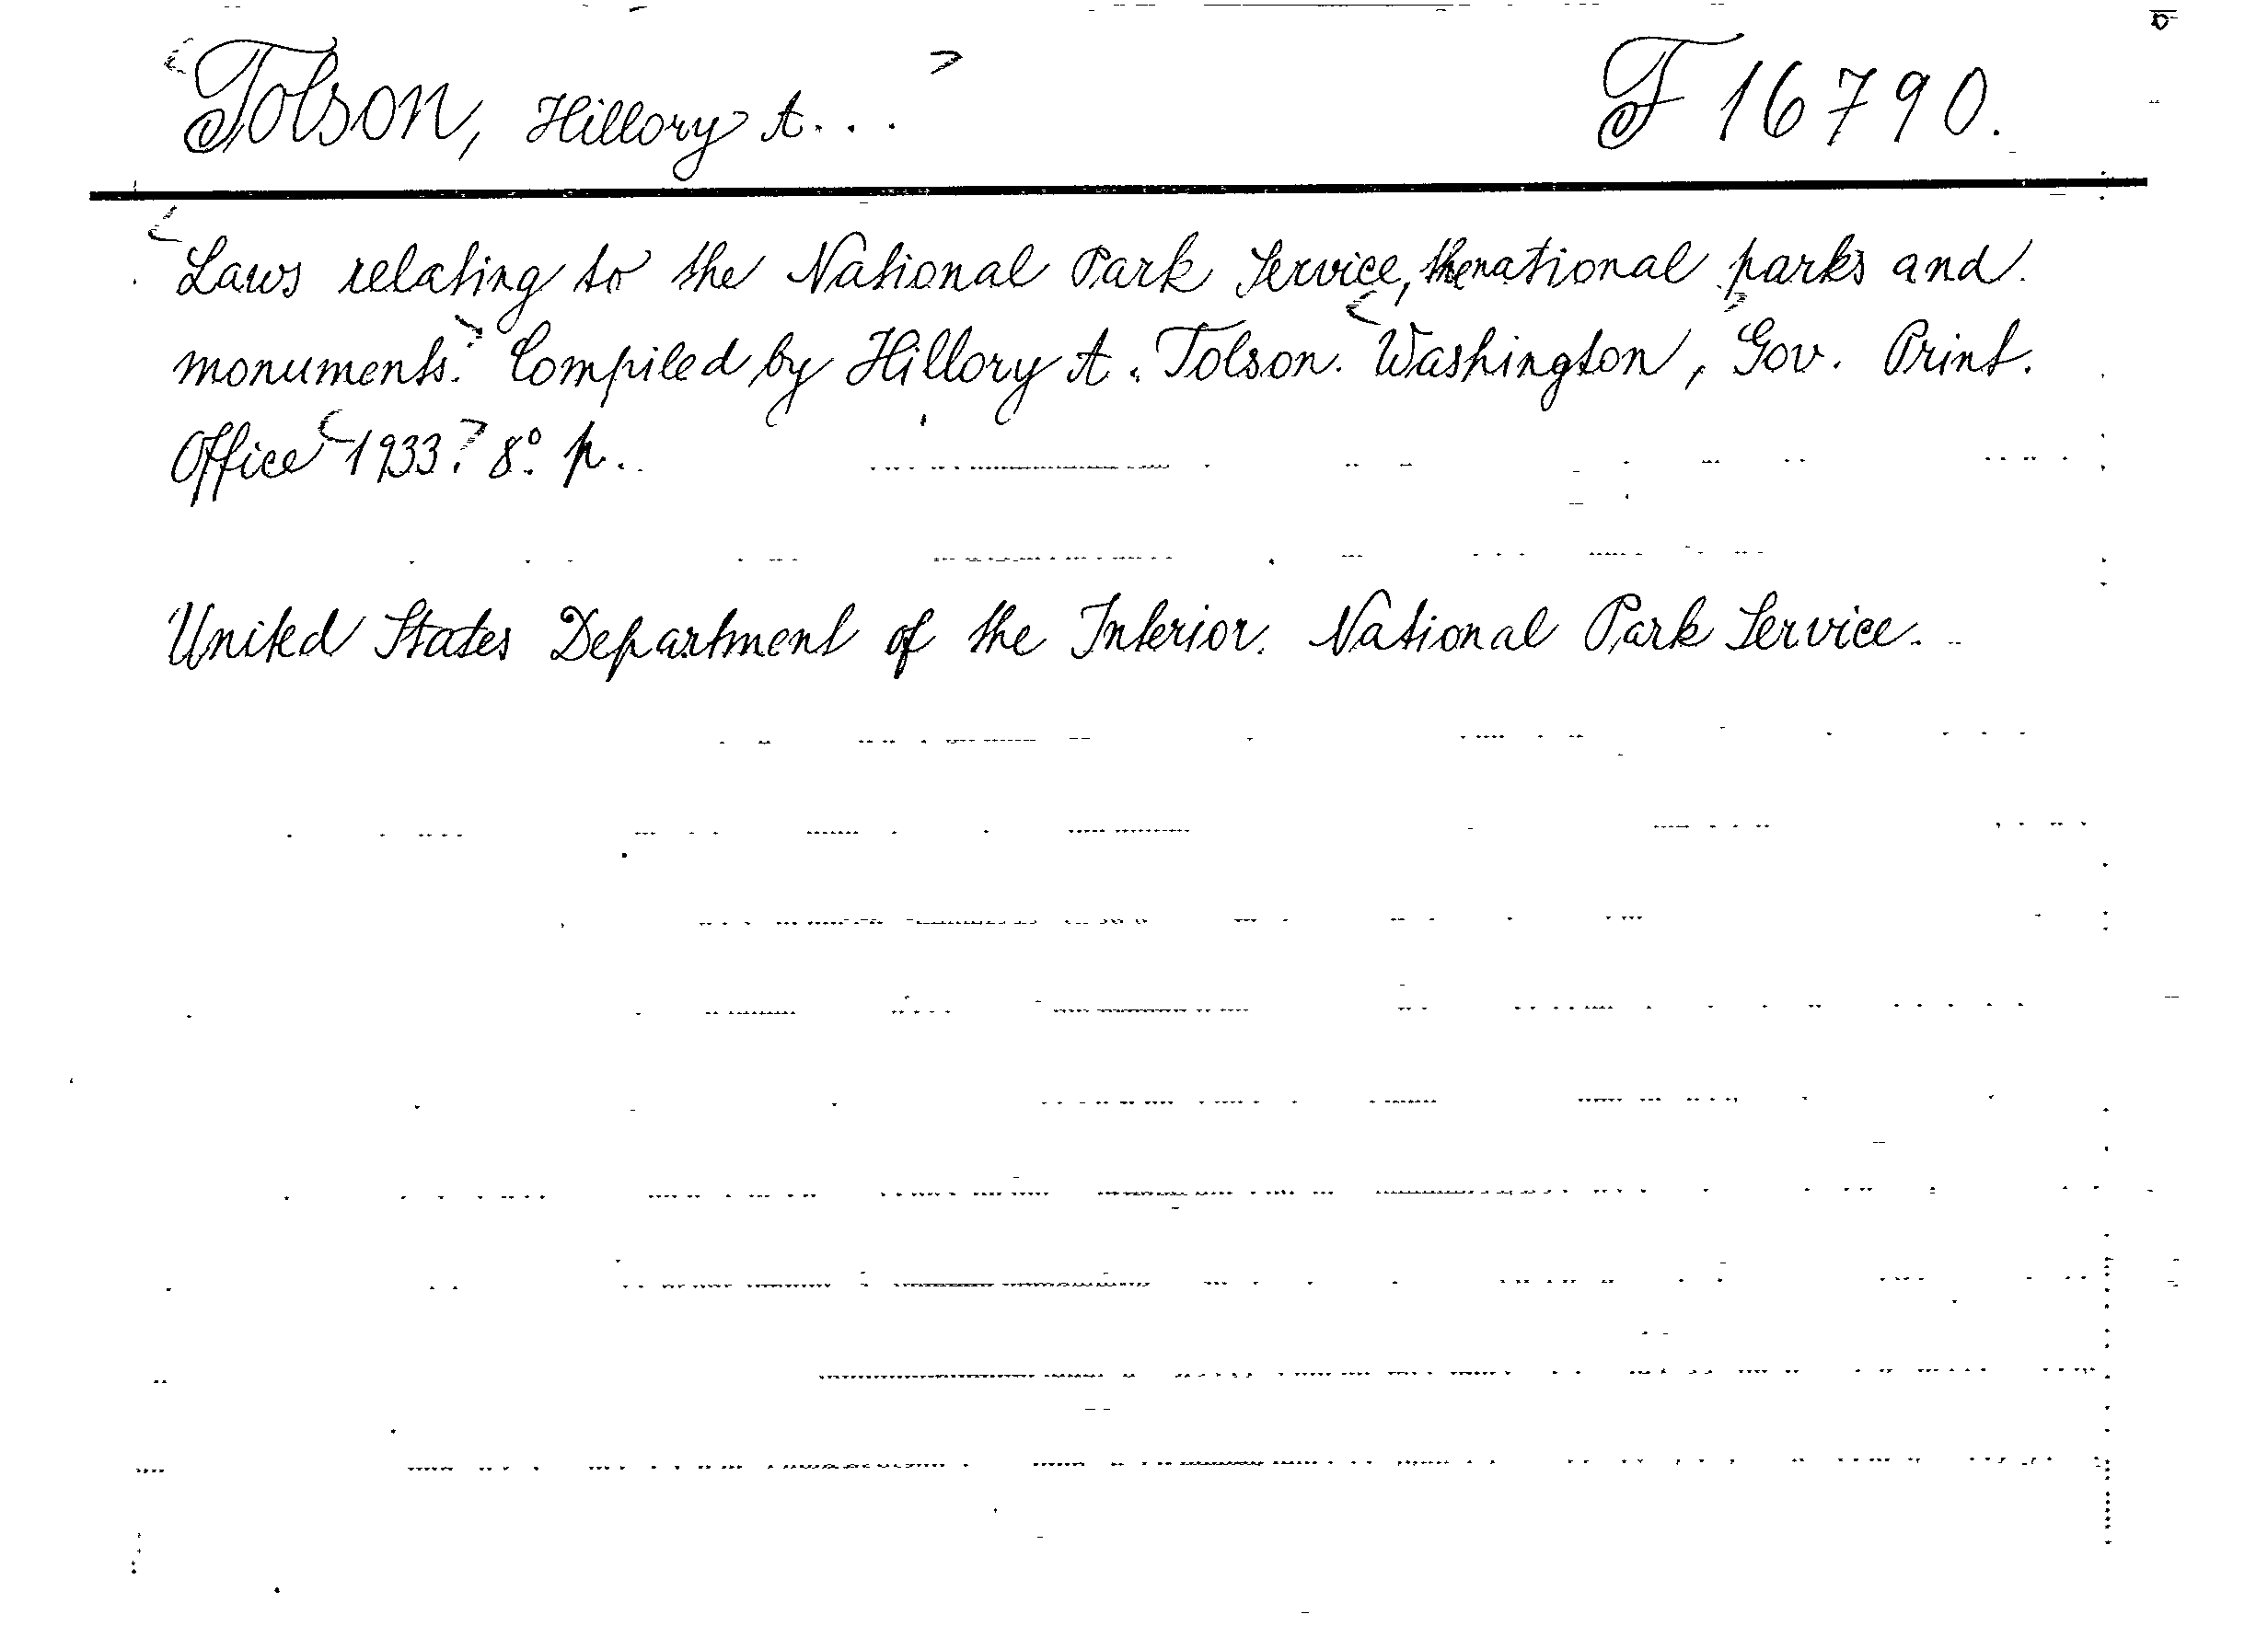 Tolson, Hillory A... F 16790.
Laws relating to the National Park Service, the national parks and
monuments. Compiled by Hillory A. Tolson. Washington, Gov. Print.
Office 1933. 8° p.
United States Department of the Interior. National Park Service.